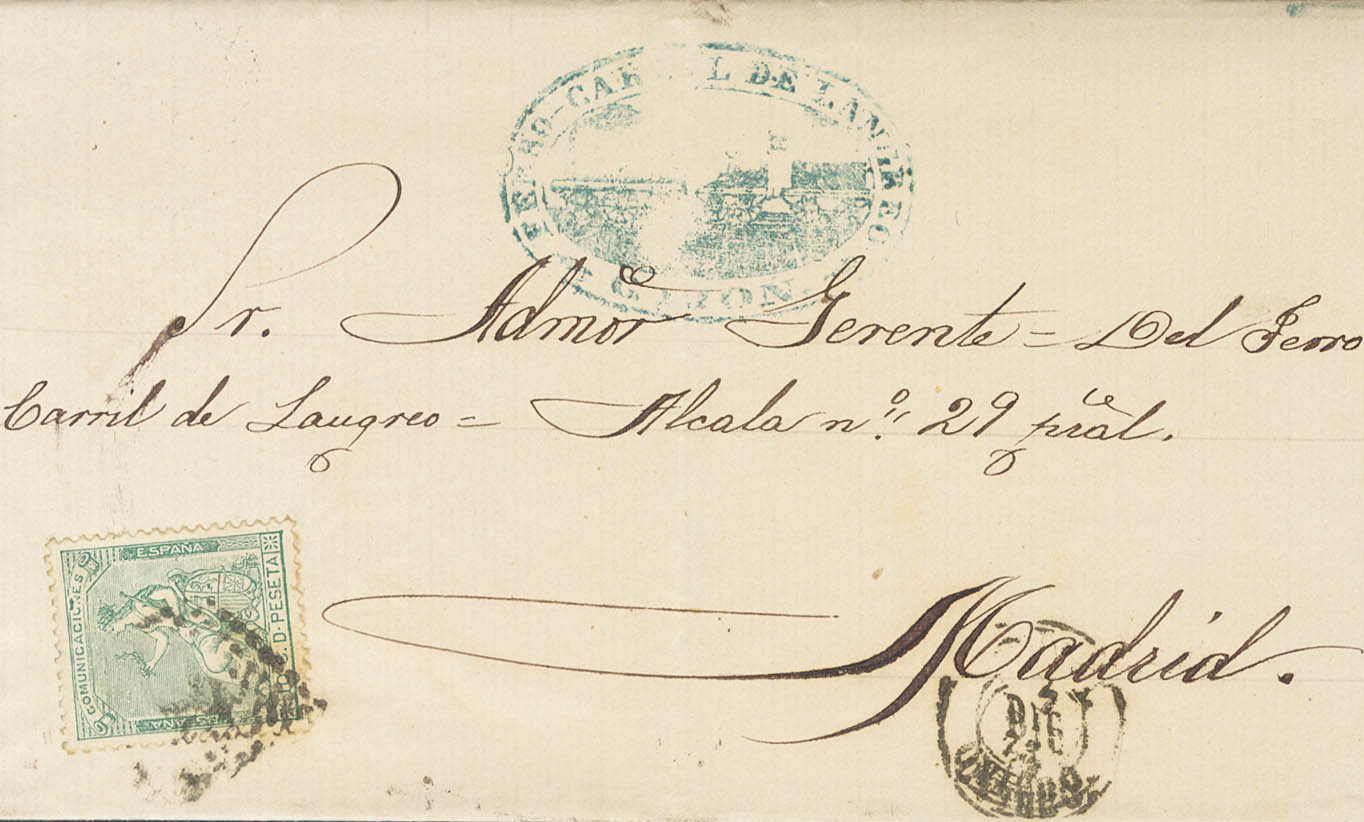 FERRO-CARRIL DE LANGREO
GIJON.
Sr. Admor Gerente = Del Ferro
Carril de Langreo = Alcala nº 29 pral.
Madrid.
ESPAÑA
COMUNICACIONES
D. PESETA
ESPAÑA
DIC